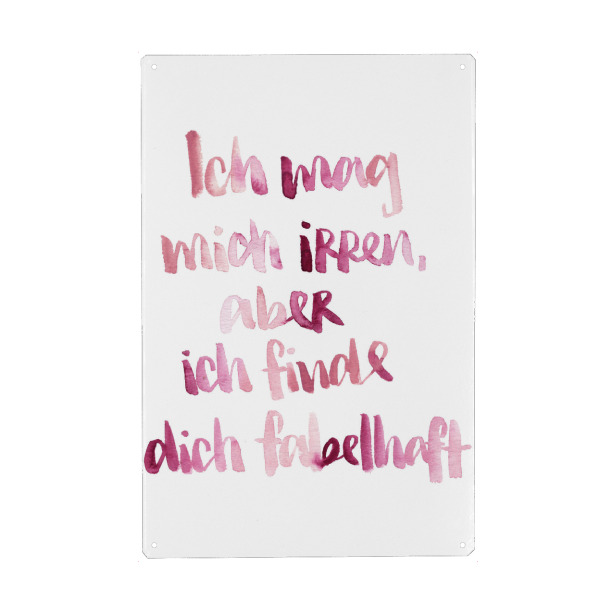 Ich mag
mich irren,
aber
ich finde
dich fabelhaft